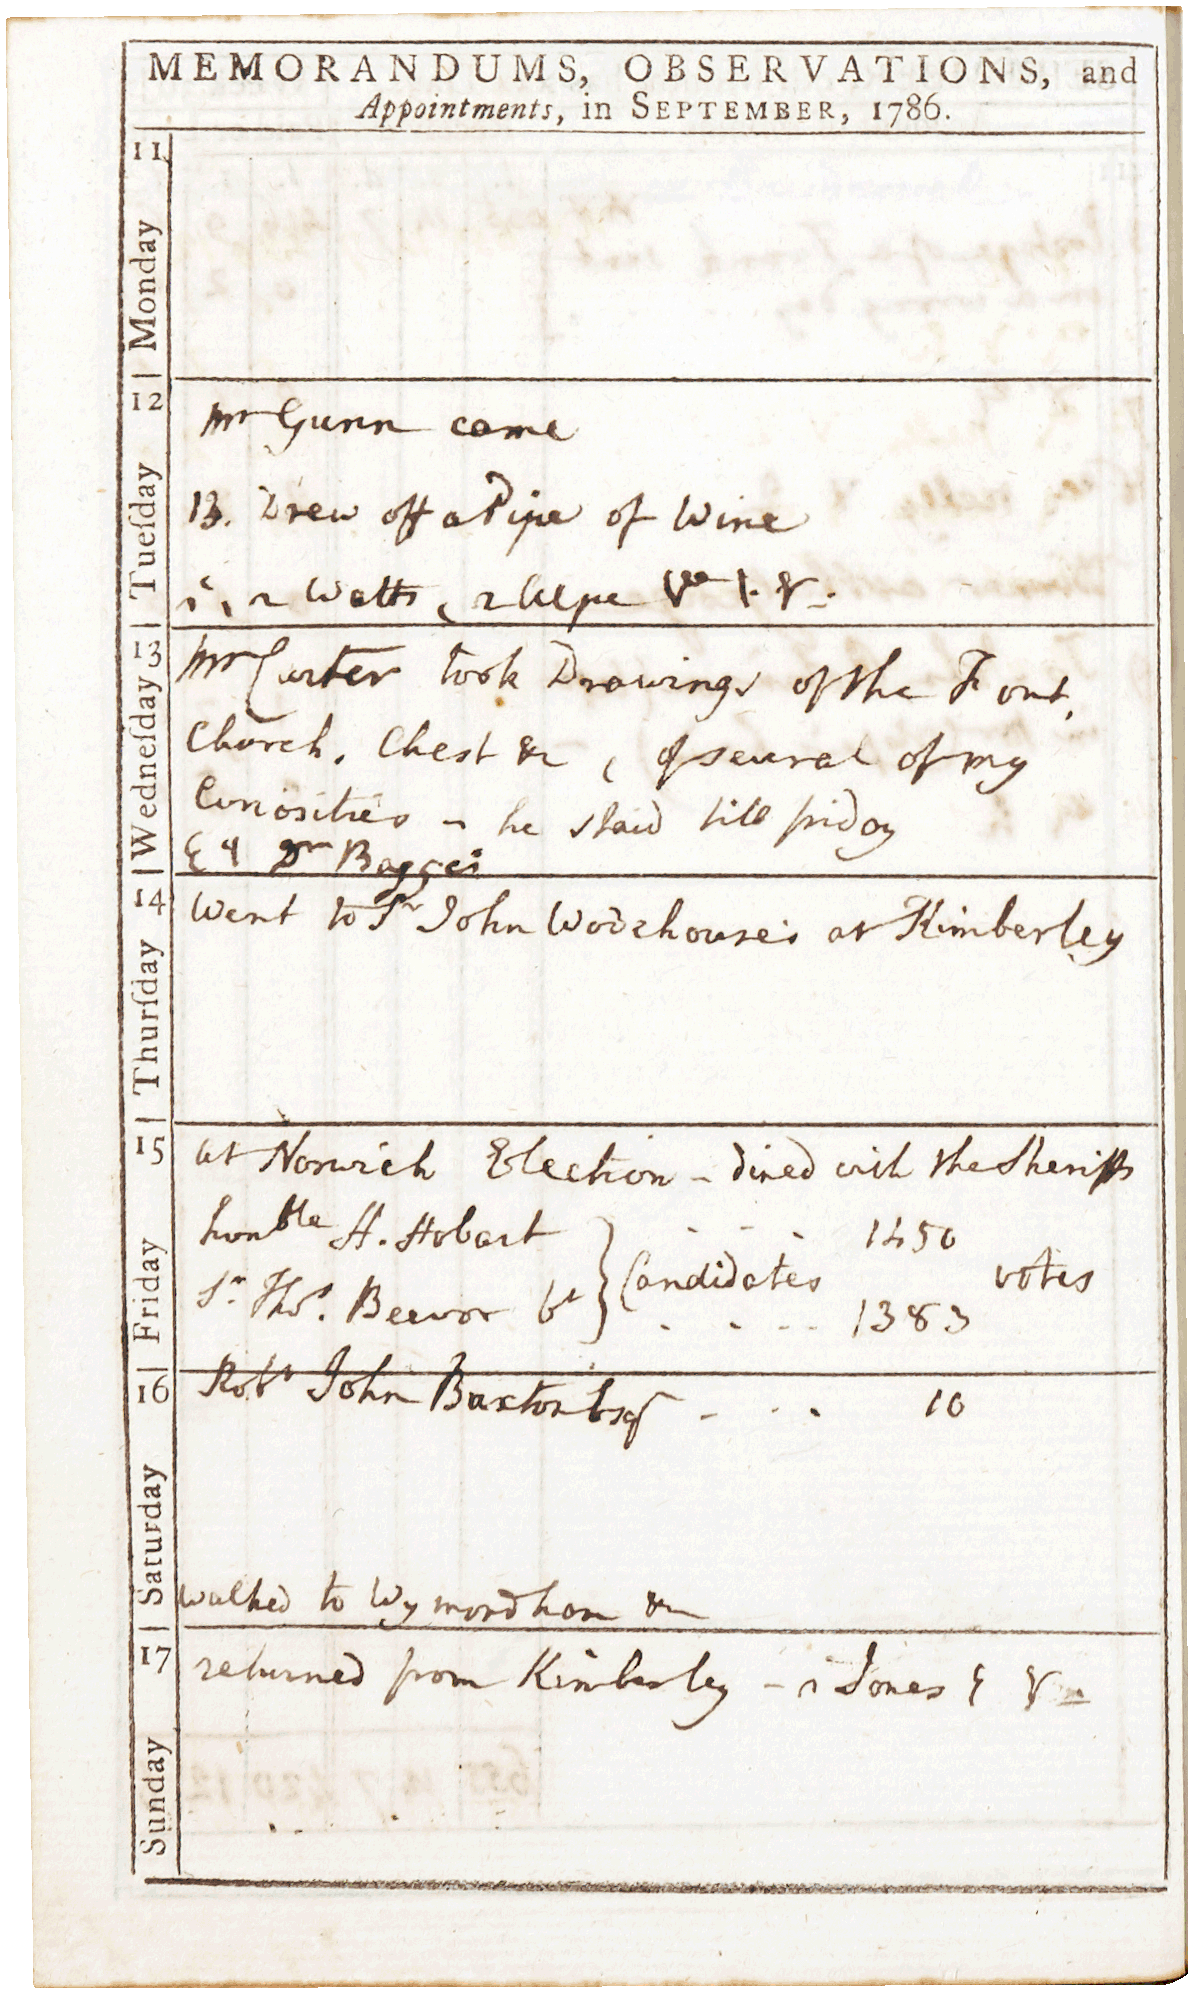 MEMORANDUMS, OBSERVATIONS, and
Appointments, in SEPTEMBER, 1786.
11
Monday
12
Tueſday
Mr Gunn came
13. Drew off a Pipe of Wine
2 Watts, 2
13
Wedneſday
Mr Carter took Drawings of the Font,
Church, Chest &c, & several of my
Curiosities - he staid till friday
& 4 Bagges
14
Thurſday
Went to Sr John Wodehouse's at Kimberley
15
Friday
at Norwich Election - dined with the Sheriffs
honble H. Hobart - - - 1450
Candidates votes
Sr Thos. Beevor bt - - - - 1383
16
Saturday
Robt John Buxton Esqr - - - 10
walked to Wymondham &c
17
Sunday
returned from Kimberley - Jones &